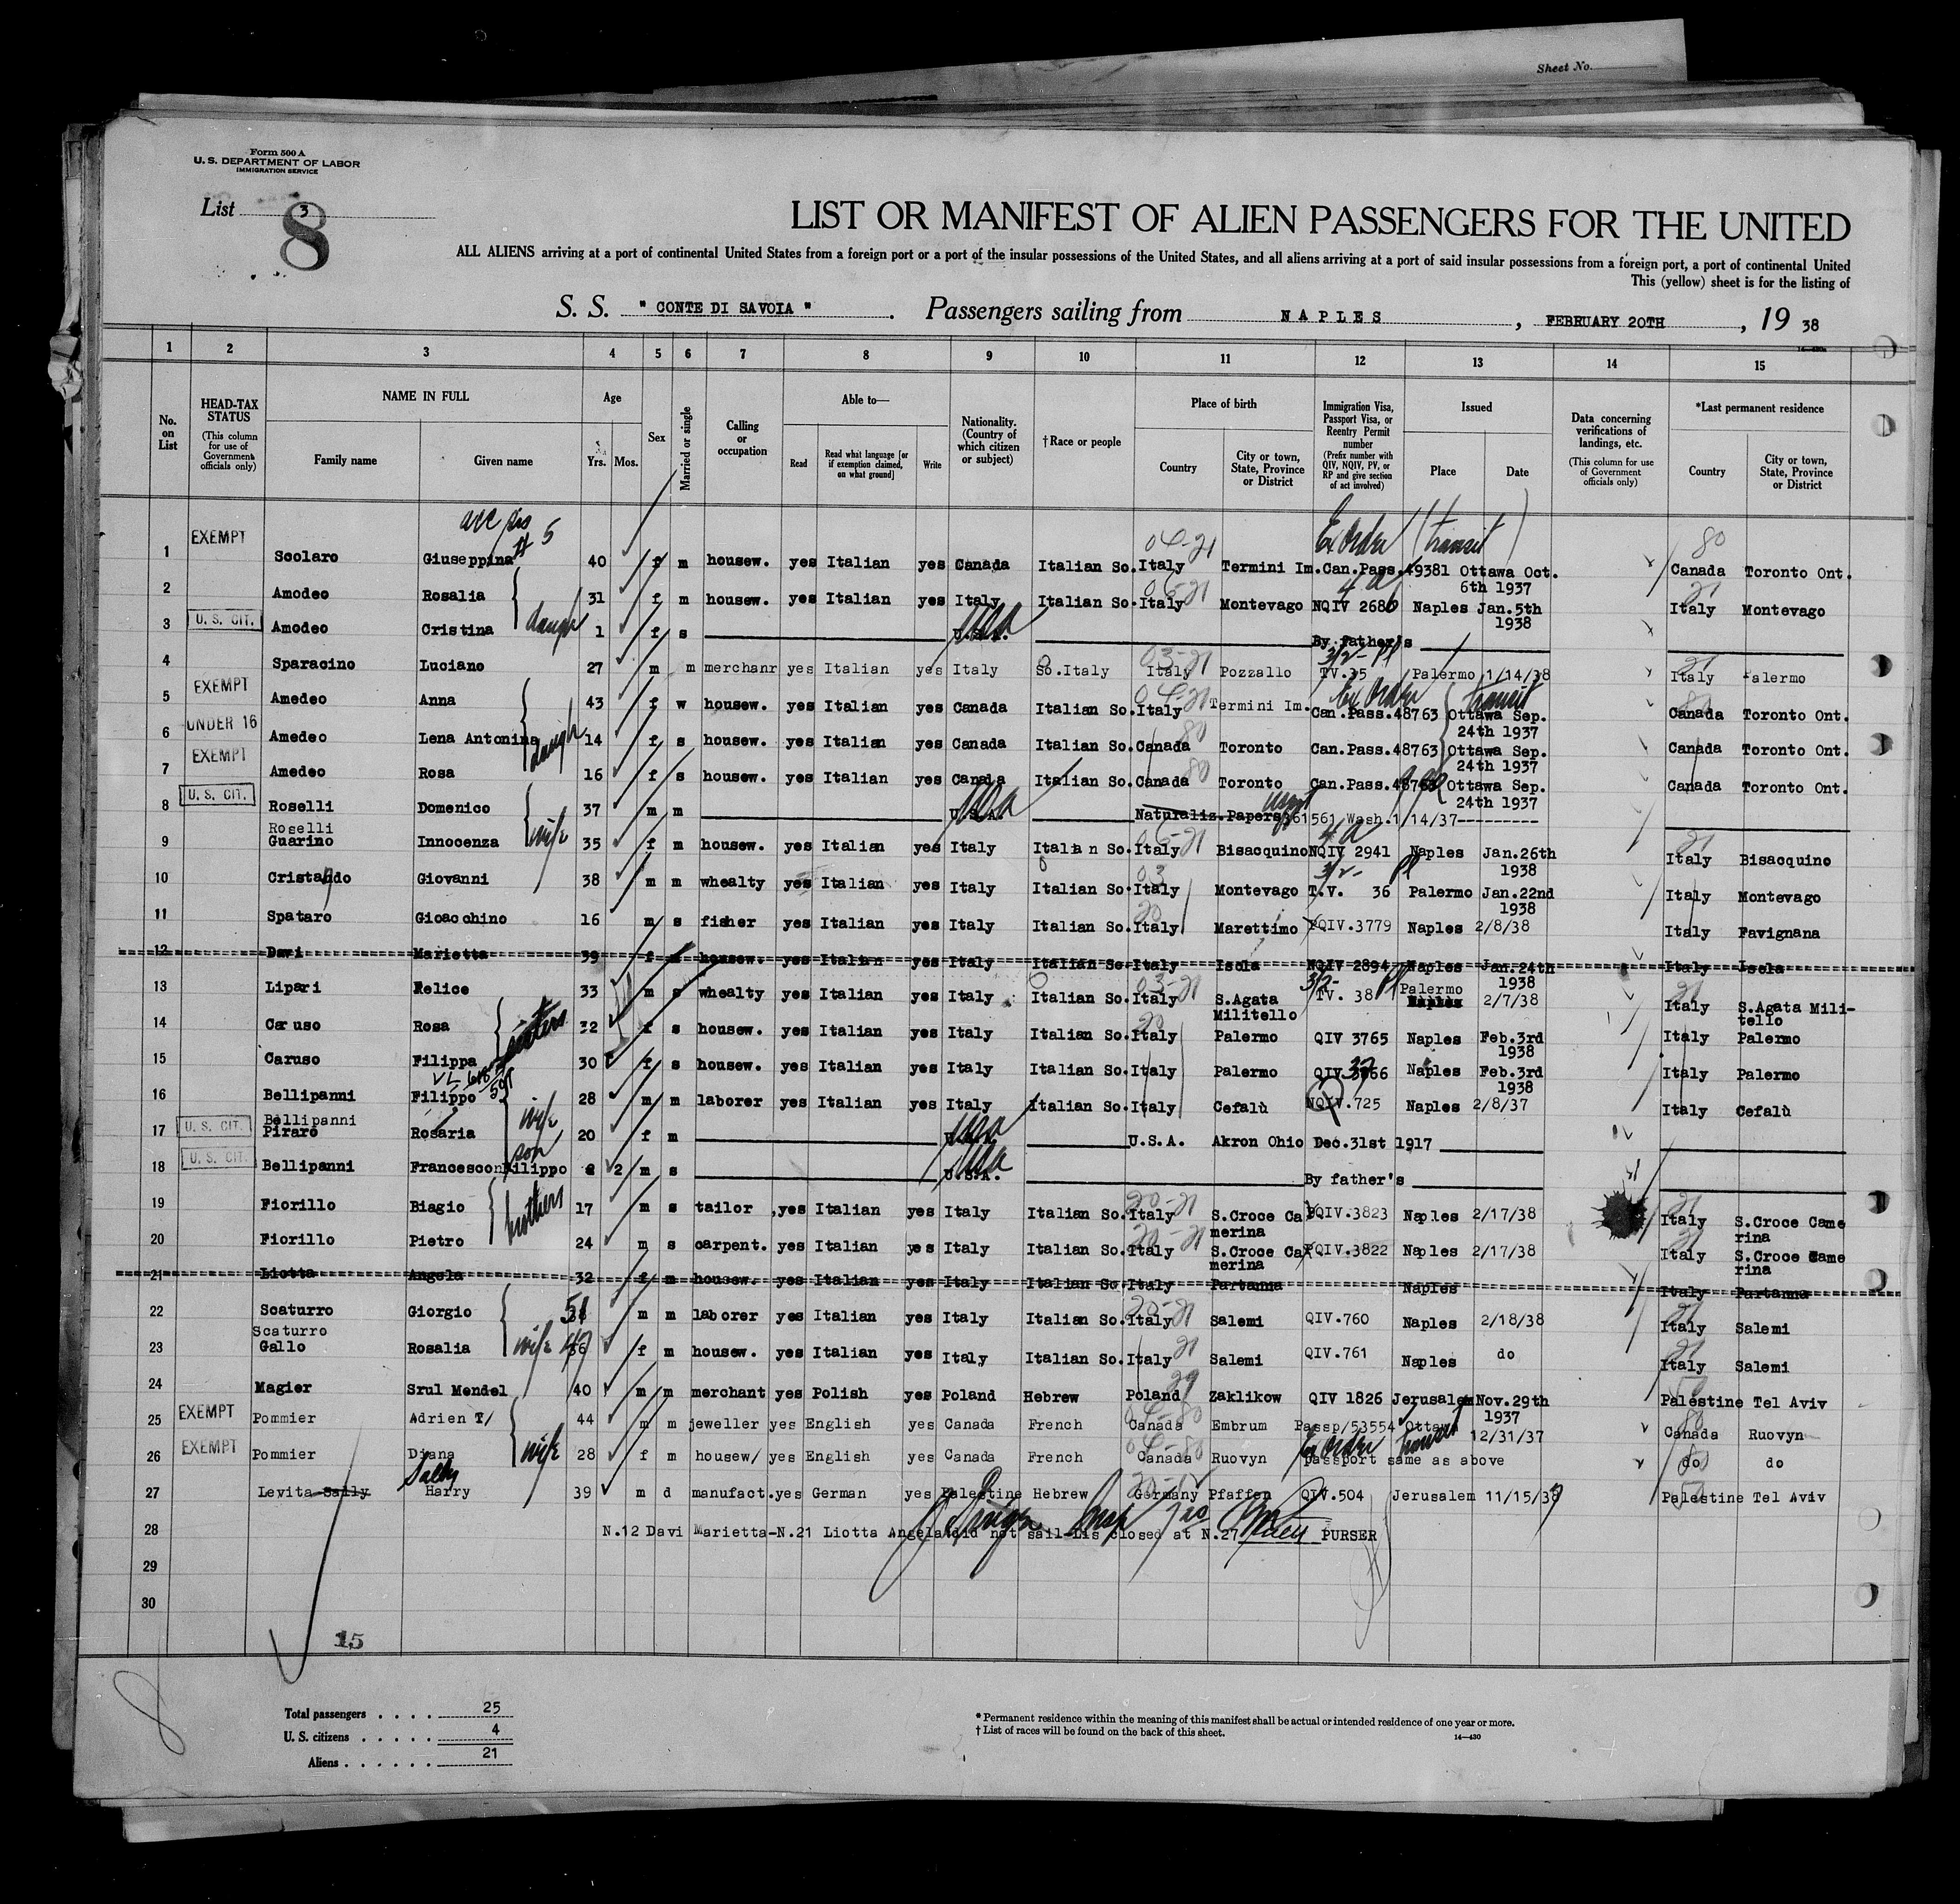 Sheet No.
Form 500 A
U. S. DEPARTMENT OF LABOR
IMMIGRATION SERVICE
List 3
8
LIST OR MANIFEST OF ALIEN PASSENGERS FOR THE UNITED
ALL ALIENS arriving at a port of continental United States from a foreign port or a port of the insular possessions of the United States, and all aliens arriving at a port of said insular possessions from a foreign port, a port of continental United
This (yellow) sheet is for the listing of
S. S. " CONTE DI SAVOIA ". Passengers sailing from NAPLES, FEBRUARY 20TH, 19 38
1 2 3 4 5 6 7 8 9 10 11 12 13 14 15
No. on List
HEAD-TAX STATUS (This column for use of Government officials only)
NAME IN FULL
Family name Given name
Age Yrs. Mos.
Sex
Married or single
Calling or occupation
Able to—
Read Read what language [or if exemption claimed, on what ground] Write
Nationality. (Country of which citizen or subject)
†Race or people
Place of birth
Country City or town, State, Province or District
Immigration Visa, Passport Visa, or Reentry Permit number (Prefix number with QIV, NQIV, PV, or RP and give section of act involved)
Issued
Place Date
Data concerning verifications of landings, etc. (This column for use of Government officials only)
*Last permanent residence
Country City or town, State, Province or District
Ex Order (transit) 80
1 EXEMPT Scolaro Giuseppina 40 f m housew. yes Italian yes Canada Italian So. Italy Termini Im. Can.Pass.49381 Ottawa Oct. 6th 1937 Canada Toronto Ont.
2 Amodeo Rosalia 31 f m housew. yes Italian yes Italy Italian So. Italy Montevago NQIV 2680 Naples Jan.5th 1938 Italy Montevago
3 U. S. CIT. Amodeo Cristina daugh 1 f s U.S.A. By father's
4 Sparacino Luciano 27 m m merchanr yes Italian yes Italy So.Italy Italy Pozzallo TV.35 Palermo 1/14/38 Italy Palermo
5 EXEMPT Amedeo Anna 43 f w housew. yes Italian yes Canada Italian So. Italy Termini Im. Can.Pass.48763 Ottawa Sep. 24th 1937 Canada Toronto Ont.
6 UNDER 16 Amedeo Lena Antonina daugh 14 f s housew. yes Italian yes Canada Italian So. Canada Toronto Can.Pass.48763 Ottawa Sep. 24th 1937 Canada Toronto Ont.
7 EXEMPT Amedeo Rosa 16 f s housew. yes Italian yes Canada Italian So. Canada Toronto Can.Pass.48763 Ottawa Sep. 24th 1937 Canada Toronto Ont.
8 U. S. CIT. Roselli Domenico 37 m m U.S.A. Naturaliz.Papers 361561 Wash.1/14/37---------
9 Roselli Guarino Innocenza wife 35 f m housew. yes Italian yes Italy Italian So. Italy Bisacquino NQIV 2941 Naples Jan.26th 1938 Italy Bisacquino
10 Cristando Giovanni 38 m m whealty yes Italian yes Italy Italian So. Italy Montevago T.V. 36 Palermo Jan.22nd 1938 Italy Montevago
11 Spataro Gioacchino 16 m s fisher yes Italian yes Italy Italian So. Italy Marettimo QIV.3779 Naples 2/8/38 Italy Favignana
12 Davi Marietta 39 f m housew. yes Italian yes Italy Italian So. Italy Isola NQIV 2894 Naples Jan.24th 1938 Italy Isola
13 Lipari Felice 33 m s whealty yes Italian yes Italy Italian So. Italy S.Agata Militello TV. 38 Palermo Naples 2/7/38 Italy S.Agata Militello
14 Caruso Rosa sisters 32 f s housew. yes Italian yes Italy Italian So. Italy Palermo QIV 3765 Naples Feb.3rd 1938 Italy Palermo
15 Caruso Filippa 30 f s housew. yes Italian yes Italy Italian So. Italy Palermo QIV 3766 Naples Feb.3rd 1938 Italy Palermo
16 Bellipanni Filippo 28 m m laborer yes Italian yes Italy Italian So. Italy Cefalù NQIV.725 Naples 2/8/37 Italy Cefalù
17 U. S. CIT. Bellipanni Piraro Rosaria wife 20 f m U.S.A. Akron Ohio Dec.31st 1917
18 U. S. CIT. Bellipanni Francesco Filippo son 2 m s U.S.A. By father's
19 Fiorillo Biagio brothers 17 m s tailor yes Italian yes Italy Italian So. Italy S.Croce Camerina QIV.3823 Naples 2/17/38 Italy S.Croce Camerina
20 Fiorillo Pietro 24 m s carpent. yes Italian yes Italy Italian So. Italy S.Croce Camerina QIV.3822 Naples 2/17/38 Italy S.Croce Camerina
21 Liotta Angela 32 f m housew. yes Italian yes Italy Italian So. Italy Partanna Naples Italy Partanna
22 Scaturro Giorgio m m laborer yes Italian yes Italy Italian So. Italy Salemi QIV.760 Naples 2/18/38 Italy Salemi
23 Scaturro Gallo Rosalia wife f m housew. yes Italian yes Italy Italian So. Italy Salemi QIV.761 Naples do Italy Salemi
24 Magier Srul Mendel 40 m m merchant yes Polish yes Poland Hebrew Poland Zaklikow QIV 1826 Jerusalem Nov.29th 1937 Palestine Tel Aviv
25 EXEMPT Pommier Adrien T/ 44 m m jeweller yes English yes Canada French Canada Embrum Passp/53554 Ottawa 12/31/37 Canada Ruovyn
26 EXEMPT Pommier Diana wife 28 f m housew/ yes English yes Canada French Canada Ruovyn passport same as above do do
27 Levita Sally Sally Harry 39 m d manufact. yes German yes Palestine Hebrew Germany Pfaffen QIV.504 Jerusalem 11/15/37 Palestine Tel Aviv
28 N.12 Davi Marietta-N.21 Liotta Angela did not sail-Lis closed at N.27 PURSER
29
30
15
8
Total passengers . . . . 25
U. S. citizens . . . . . 4
Aliens . . . . . . 21
* Permanent residence within the meaning of this manifest shall be actual or intended residence of one year or more.
† List of races will be found on the back of this sheet.
14—430